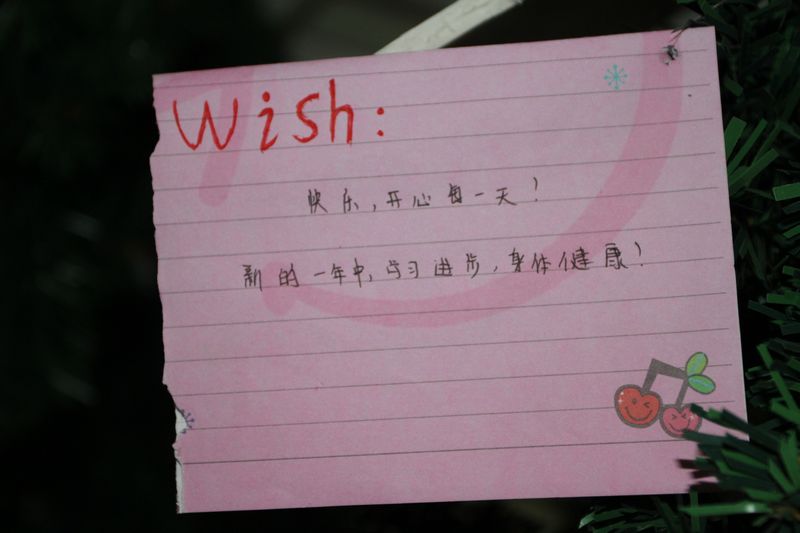 Wish:
快乐,开心每一天!
新的一年中,学习进步,身体健康!